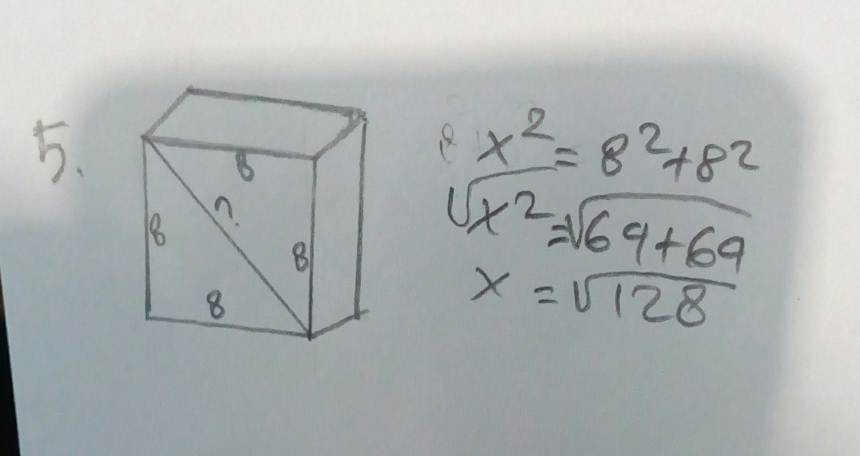 5.
8
8
?
8
8
x² = 8² + 8²
√x² = √64 + 64
x = √128